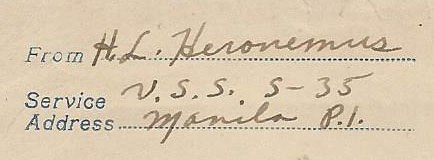 From H. L. Heronemus
Service U.S.S. S-35
Address Manila P.I.